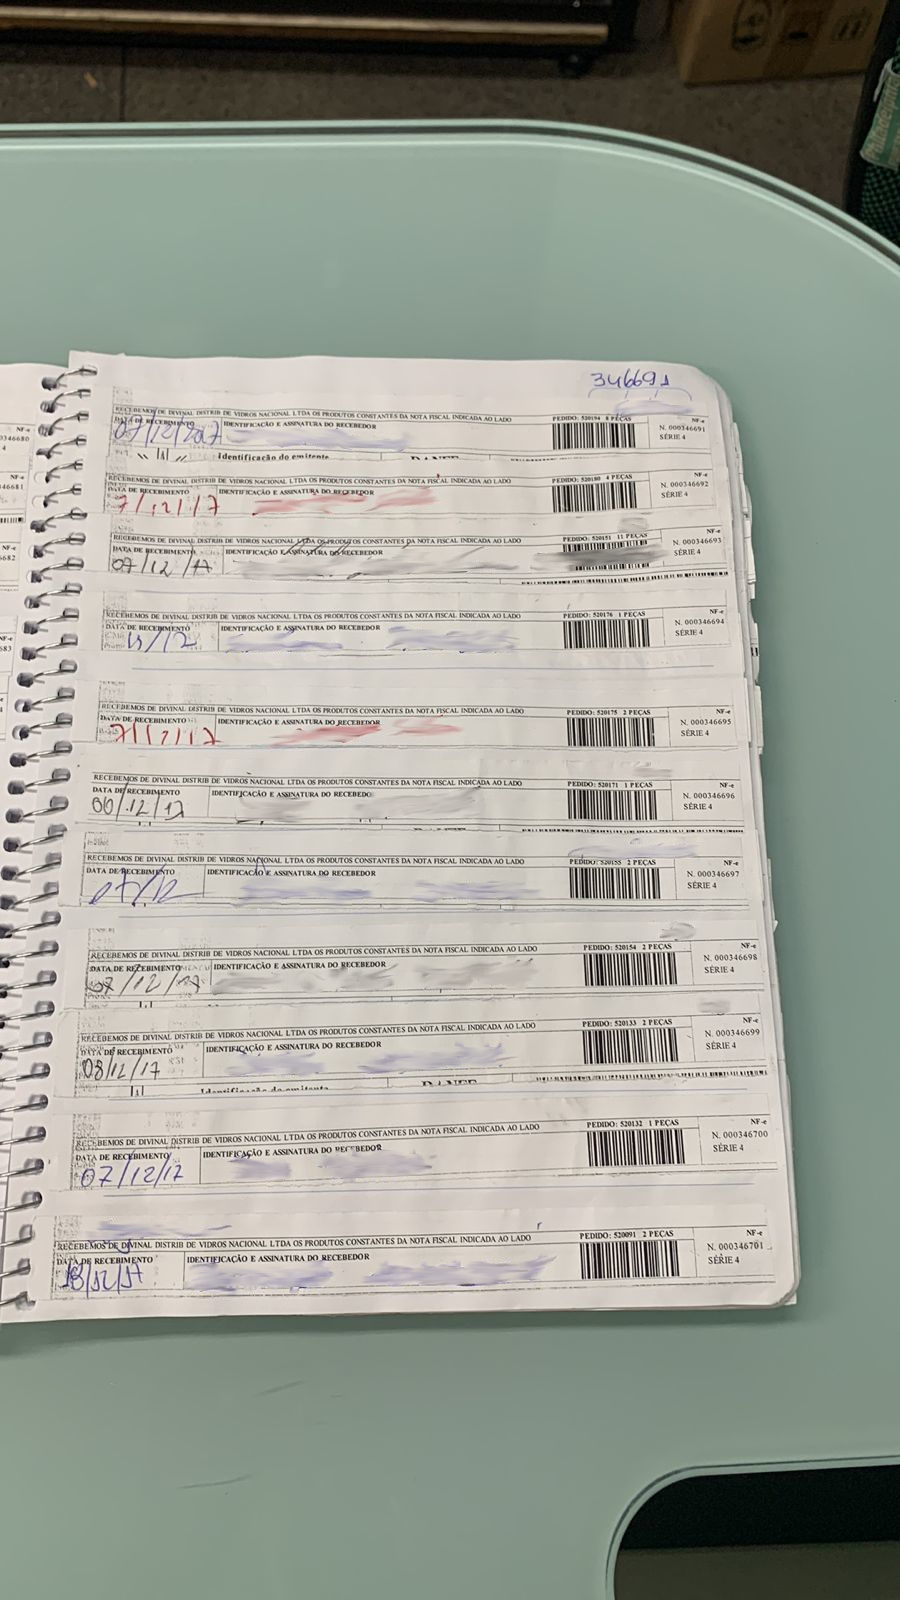 Philadelphia
346691
RECEBEMOS DE DIVINAL DISTRIB DE VIDROS NACIONAL LTDA OS PRODUTOS CONSTANTES DA NOTA FISCAL INDICADA AO LADO PEDIDO: 520194 8 PEÇAS NF-e
DATA DE RECEBIMENTO IDENTIFICAÇÃO E ASSINATURA DO RECEBEDOR N. 000346691
07/12/2017 SÉRIE 4
Identificação do emitente
RECEBEMOS DE DIVINAL DISTRIB DE VIDROS NACIONAL LTDA OS PRODUTOS CONSTANTES DA NOTA FISCAL INDICADA AO LADO PEDIDO: 520180 4 PEÇAS NF-e
DATA DE RECEBIMENTO IDENTIFICAÇÃO E ASSINATURA DO RECEBEDOR N. 000346692
7/12/17 SÉRIE 4
RECEBEMOS DE DIVINAL DISTRIB DE VIDROS NACIONAL LTDA OS PRODUTOS CONSTANTES DA NOTA FISCAL INDICADA AO LADO PEDIDO: 520151 11 PEÇAS NF-e
DATA DE RECEBIMENTO IDENTIFICAÇÃO E ASSINATURA DO RECEBEDOR N. 000346693
07/12/17 SÉRIE 4
RECEBEMOS DE DIVINAL DISTRIB DE VIDROS NACIONAL LTDA OS PRODUTOS CONSTANTES DA NOTA FISCAL INDICADA AO LADO PEDIDO: 520176 1 PEÇAS NF-e
DATA DE RECEBIMENTO IDENTIFICAÇÃO E ASSINATURA DO RECEBEDOR N. 000346694
SÉRIE 4
RECEBEMOS DE DIVINAL DISTRIB DE VIDROS NACIONAL LTDA OS PRODUTOS CONSTANTES DA NOTA FISCAL INDICADA AO LADO PEDIDO: 520175 2 PEÇAS NF-e
DATA DE RECEBIMENTO IDENTIFICAÇÃO E ASSINATURA DO RECEBEDOR N. 000346695
7/12/17 SÉRIE 4
RECEBEMOS DE DIVINAL DISTRIB DE VIDROS NACIONAL LTDA OS PRODUTOS CONSTANTES DA NOTA FISCAL INDICADA AO LADO PEDIDO: 520171 1 PEÇAS NF-e
DATA DE RECEBIMENTO IDENTIFICAÇÃO E ASSINATURA DO RECEBEDO N. 000346696
SÉRIE 4
RECEBEMOS DE DIVINAL DISTRIB DE VIDROS NACIONAL LTDA OS PRODUTOS CONSTANTES DA NOTA FISCAL INDICADA AO LADO PEDIDO: 520155 2 PEÇAS NF-e
DATA DE RECEBIMENTO IDENTIFICAÇÃO E ASSINATURA DO RECEBEDOR N. 000346697
07/12 SÉRIE 4
RECEBEMOS DE DIVINAL DISTRIB DE VIDROS NACIONAL LTDA OS PRODUTOS CONSTANTES DA NOTA FISCAL INDICADA AO LADO PEDIDO: 520154 2 PEÇAS NF-e
DATA DE RECEBIMENTO IDENTIFICAÇÃO E ASSINATURA DO RECEBEDOR N. 000346698
07/12/17 SÉRIE 4
RECEBEMOS DE DIVINAL DISTRIB DE VIDROS NACIONAL LTDA OS PRODUTOS CONSTANTES DA NOTA FISCAL INDICADA AO LADO PEDIDO: 520133 2 PEÇAS NF-e
DATA DE RECEBIMENTO IDENTIFICAÇÃO E ASSINATURA DO RECEBEDOR N. 000346699
08/12/17 SÉRIE 4
Identificação do emitente
RECEBEMOS DE DIVINAL DISTRIB DE VIDROS NACIONAL LTDA OS PRODUTOS CONSTANTES DA NOTA FISCAL INDICADA AO LADO PEDIDO: 520132 1 PEÇAS NF-e
DATA DE RECEBIMENTO IDENTIFICAÇÃO E ASSINATURA DO RECEBEDOR N. 000346700
07/12/17 SÉRIE 4
RECEBEMOS DE DIVINAL DISTRIB DE VIDROS NACIONAL LTDA OS PRODUTOS CONSTANTES DA NOTA FISCAL INDICADA AO LADO PEDIDO: 520091 2 PEÇAS NF-e
DATA DE RECEBIMENTO IDENTIFICAÇÃO E ASSINATURA DO RECEBEDOR N. 000346701
SÉRIE 4